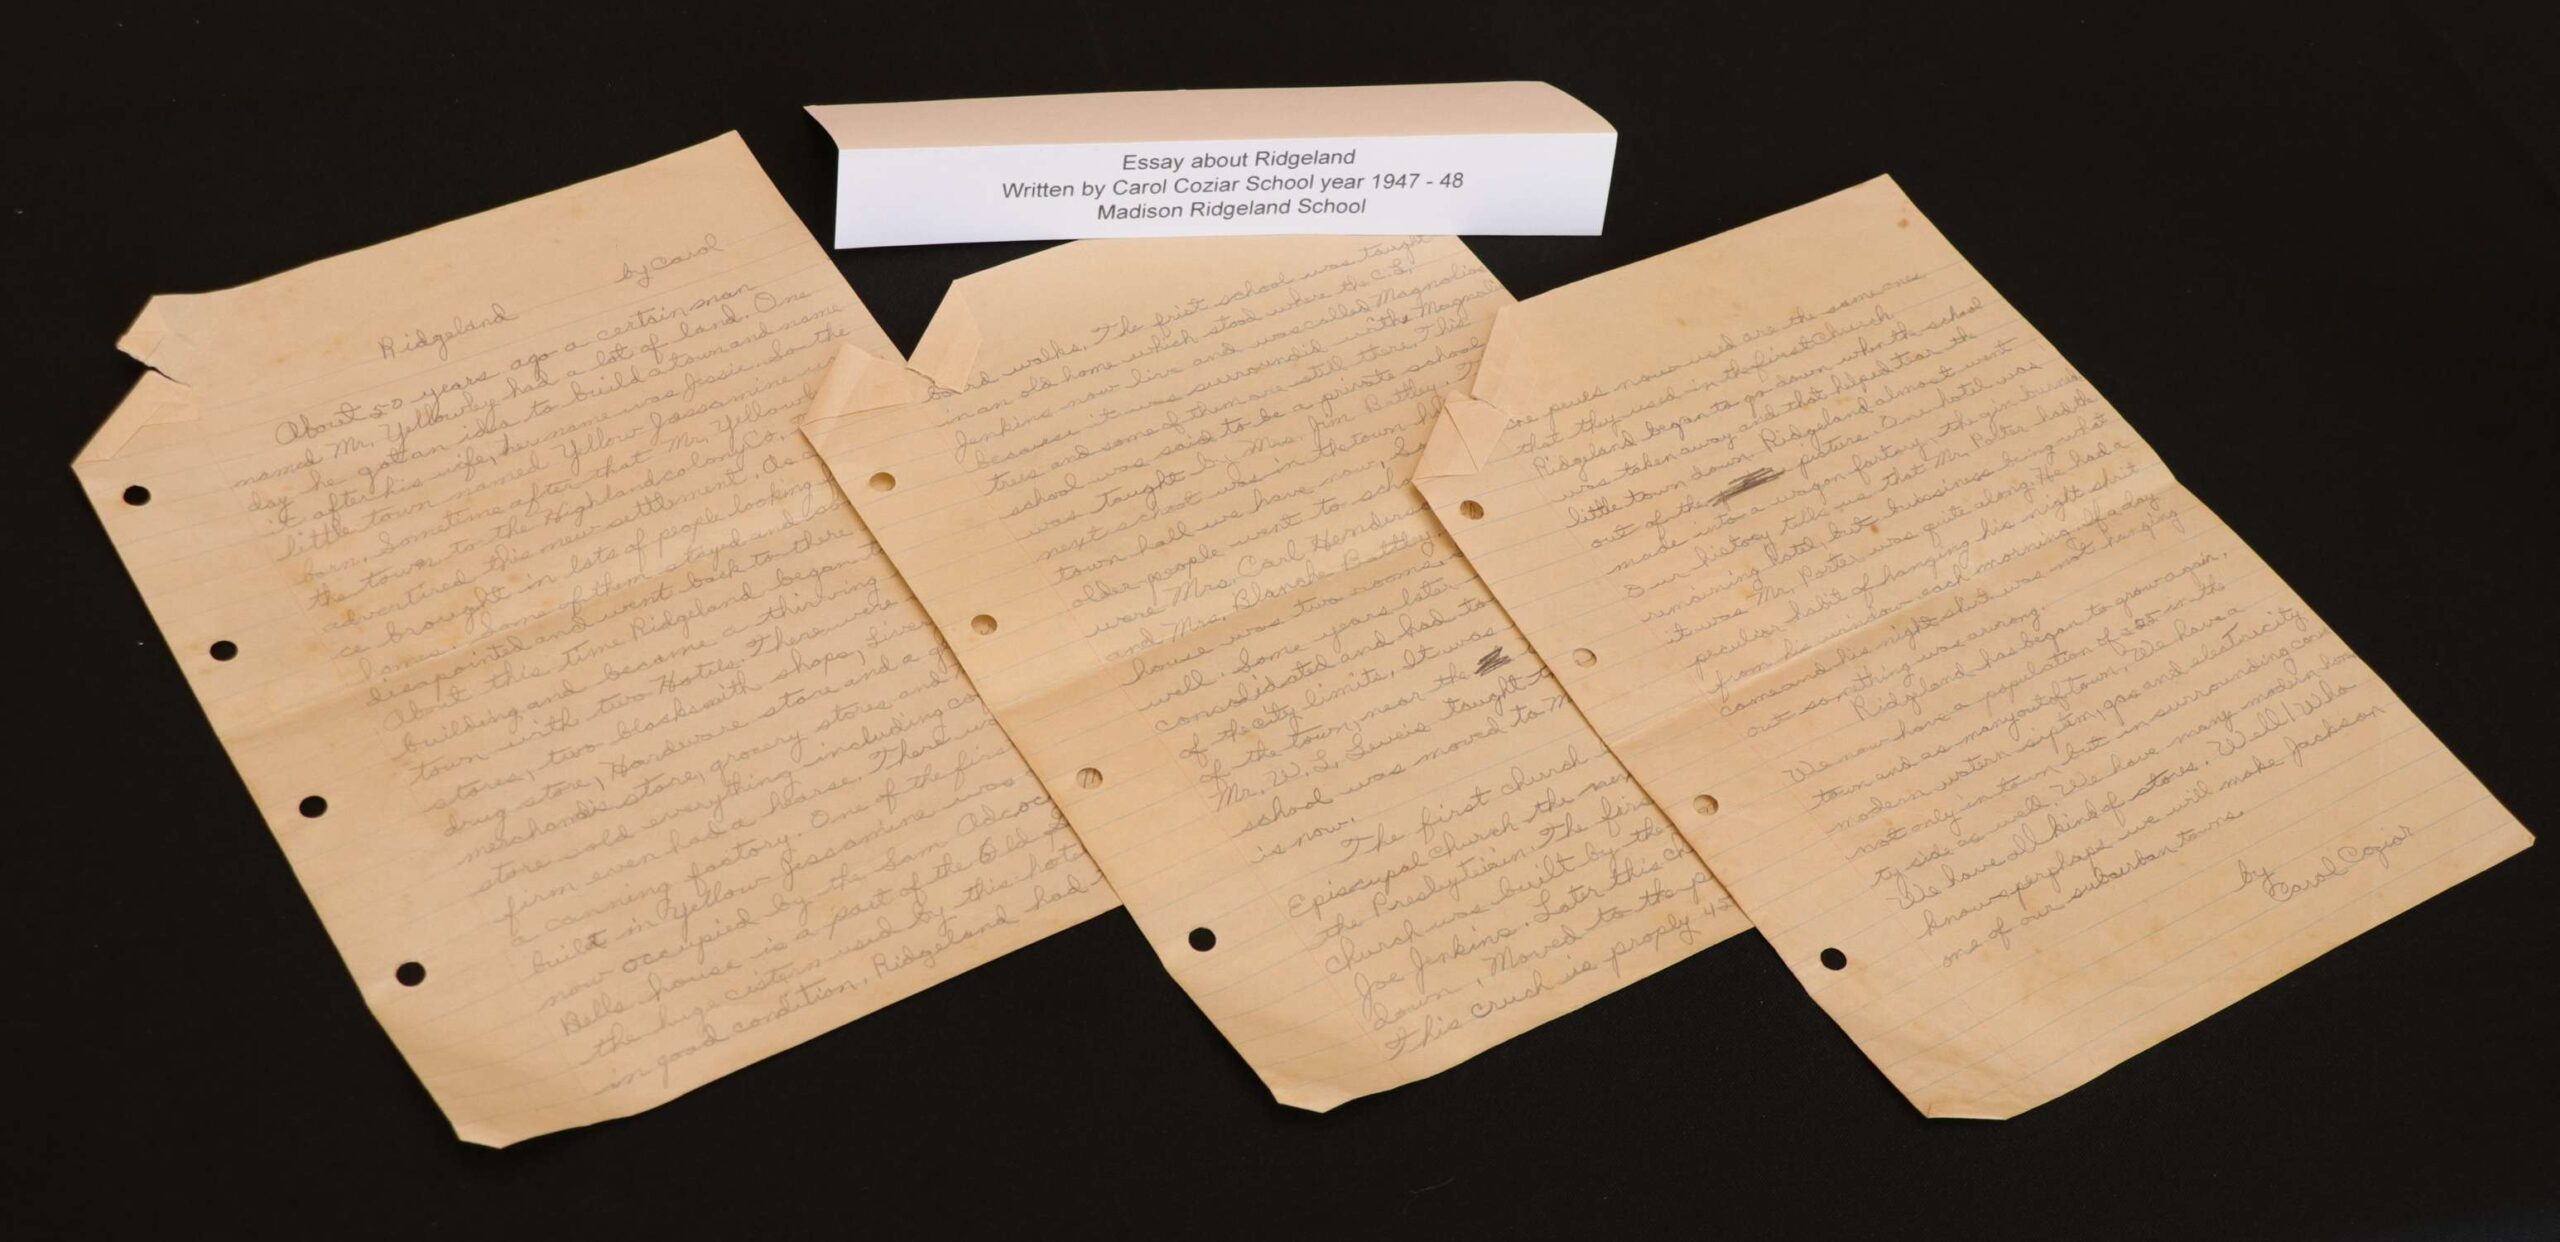 Essay about Ridgeland
Written by Carol Coziar School year 1947 - 48
Madison Ridgeland School
Ridgeland by Carol
About 50 years ago a certain man
named Mr. Yellowley had a lot of land. One
day he got an idea to build a town and name
it after his wife, her name was Jessie. So the
little town named Yellow Jassamine
born. Sometime after that Mr. Yellowl
the town to the Highland colony Co.
advertired this new settlement. As a
ce brought in lots of people looking
homes. Some of them stayed and
disapointed and went back to there
About this time Ridgeland began t
building and became a thirving
town with two Hotels. There were
stores, two blacksmith shops, Liver
drug store, Hardware store and a
merchandis store, grocery stores and
store sold everything including co
firm even had a hearse. There wa
a canning factory. One of the first
built in Yellow Jessamine was
now occupied by the Sam Adcoc
Bells house is a part of the Old
the huge cistern used by this hote
in good condition. Ridgeland had
board walks. The frist school was taught
in an old home which stood where the C.L.
Jenkins now live and was called Magnolias
because it was surroundid withs Magnoli
trees and some of them are still there. This
school was said to be a private school
was taught by Mrs. Jim Battley. T
next school was in the town h
town hall we have now. So
older people went to scho
were Mrs. Carl Henderso
and Mrs. Blanche Battley.
house was two rooms.
well. Some years later
consolidated and had to
of the city limits. It was
of the town, near the
Mr. W. L. Lewis taught t
school was moved to M
is now.
The first church
Episcupal Church the
the Presbyteirin. The firs
church was built by the
Joe Jenkins. Later this ch
down. Moved to the p
This crush is proply 45
pews now used are the same ones
that they used in the first Church
Ridgeland began to go down when the school
was taken away and that helped tear the
little town down. Ridgeland almost went
out of the picture. One hotel was
made into a wagon factory, the gin burned
Our history tells us that Mr. Porter had the
remaining hotel, but bussiness being what
it was Mr. Porter was quite along. He had a
peculiar habit of hanging his night shirt
from his window each morning. If a day
come and his night shirt was not hanging
out something was a wrong.
Ridgeland has began to grow again.
We now have a population of in the
town and as many out of town. We have a
modern watern siptem, gas and electricity
not only in town but in surrounding coun
ty side as well. We have many modern hom
We have all kind of stores. Well! Who
knows perhaps we will make Jackson
one of our subarban towns.
by
Carol Cozior